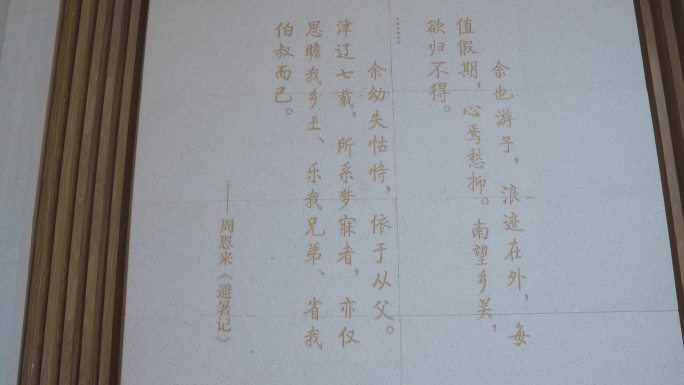 余也游子，浪迹在外，每
值假期，心焉愁抑。南望乡关，
欲归不得。
……
余幼失怙恃，依于从父。
津辽七载，所系梦寐者，亦仅
思瞻我乡土、乐我兄弟、省我
伯叔而已。
——周恩来《避暑记》